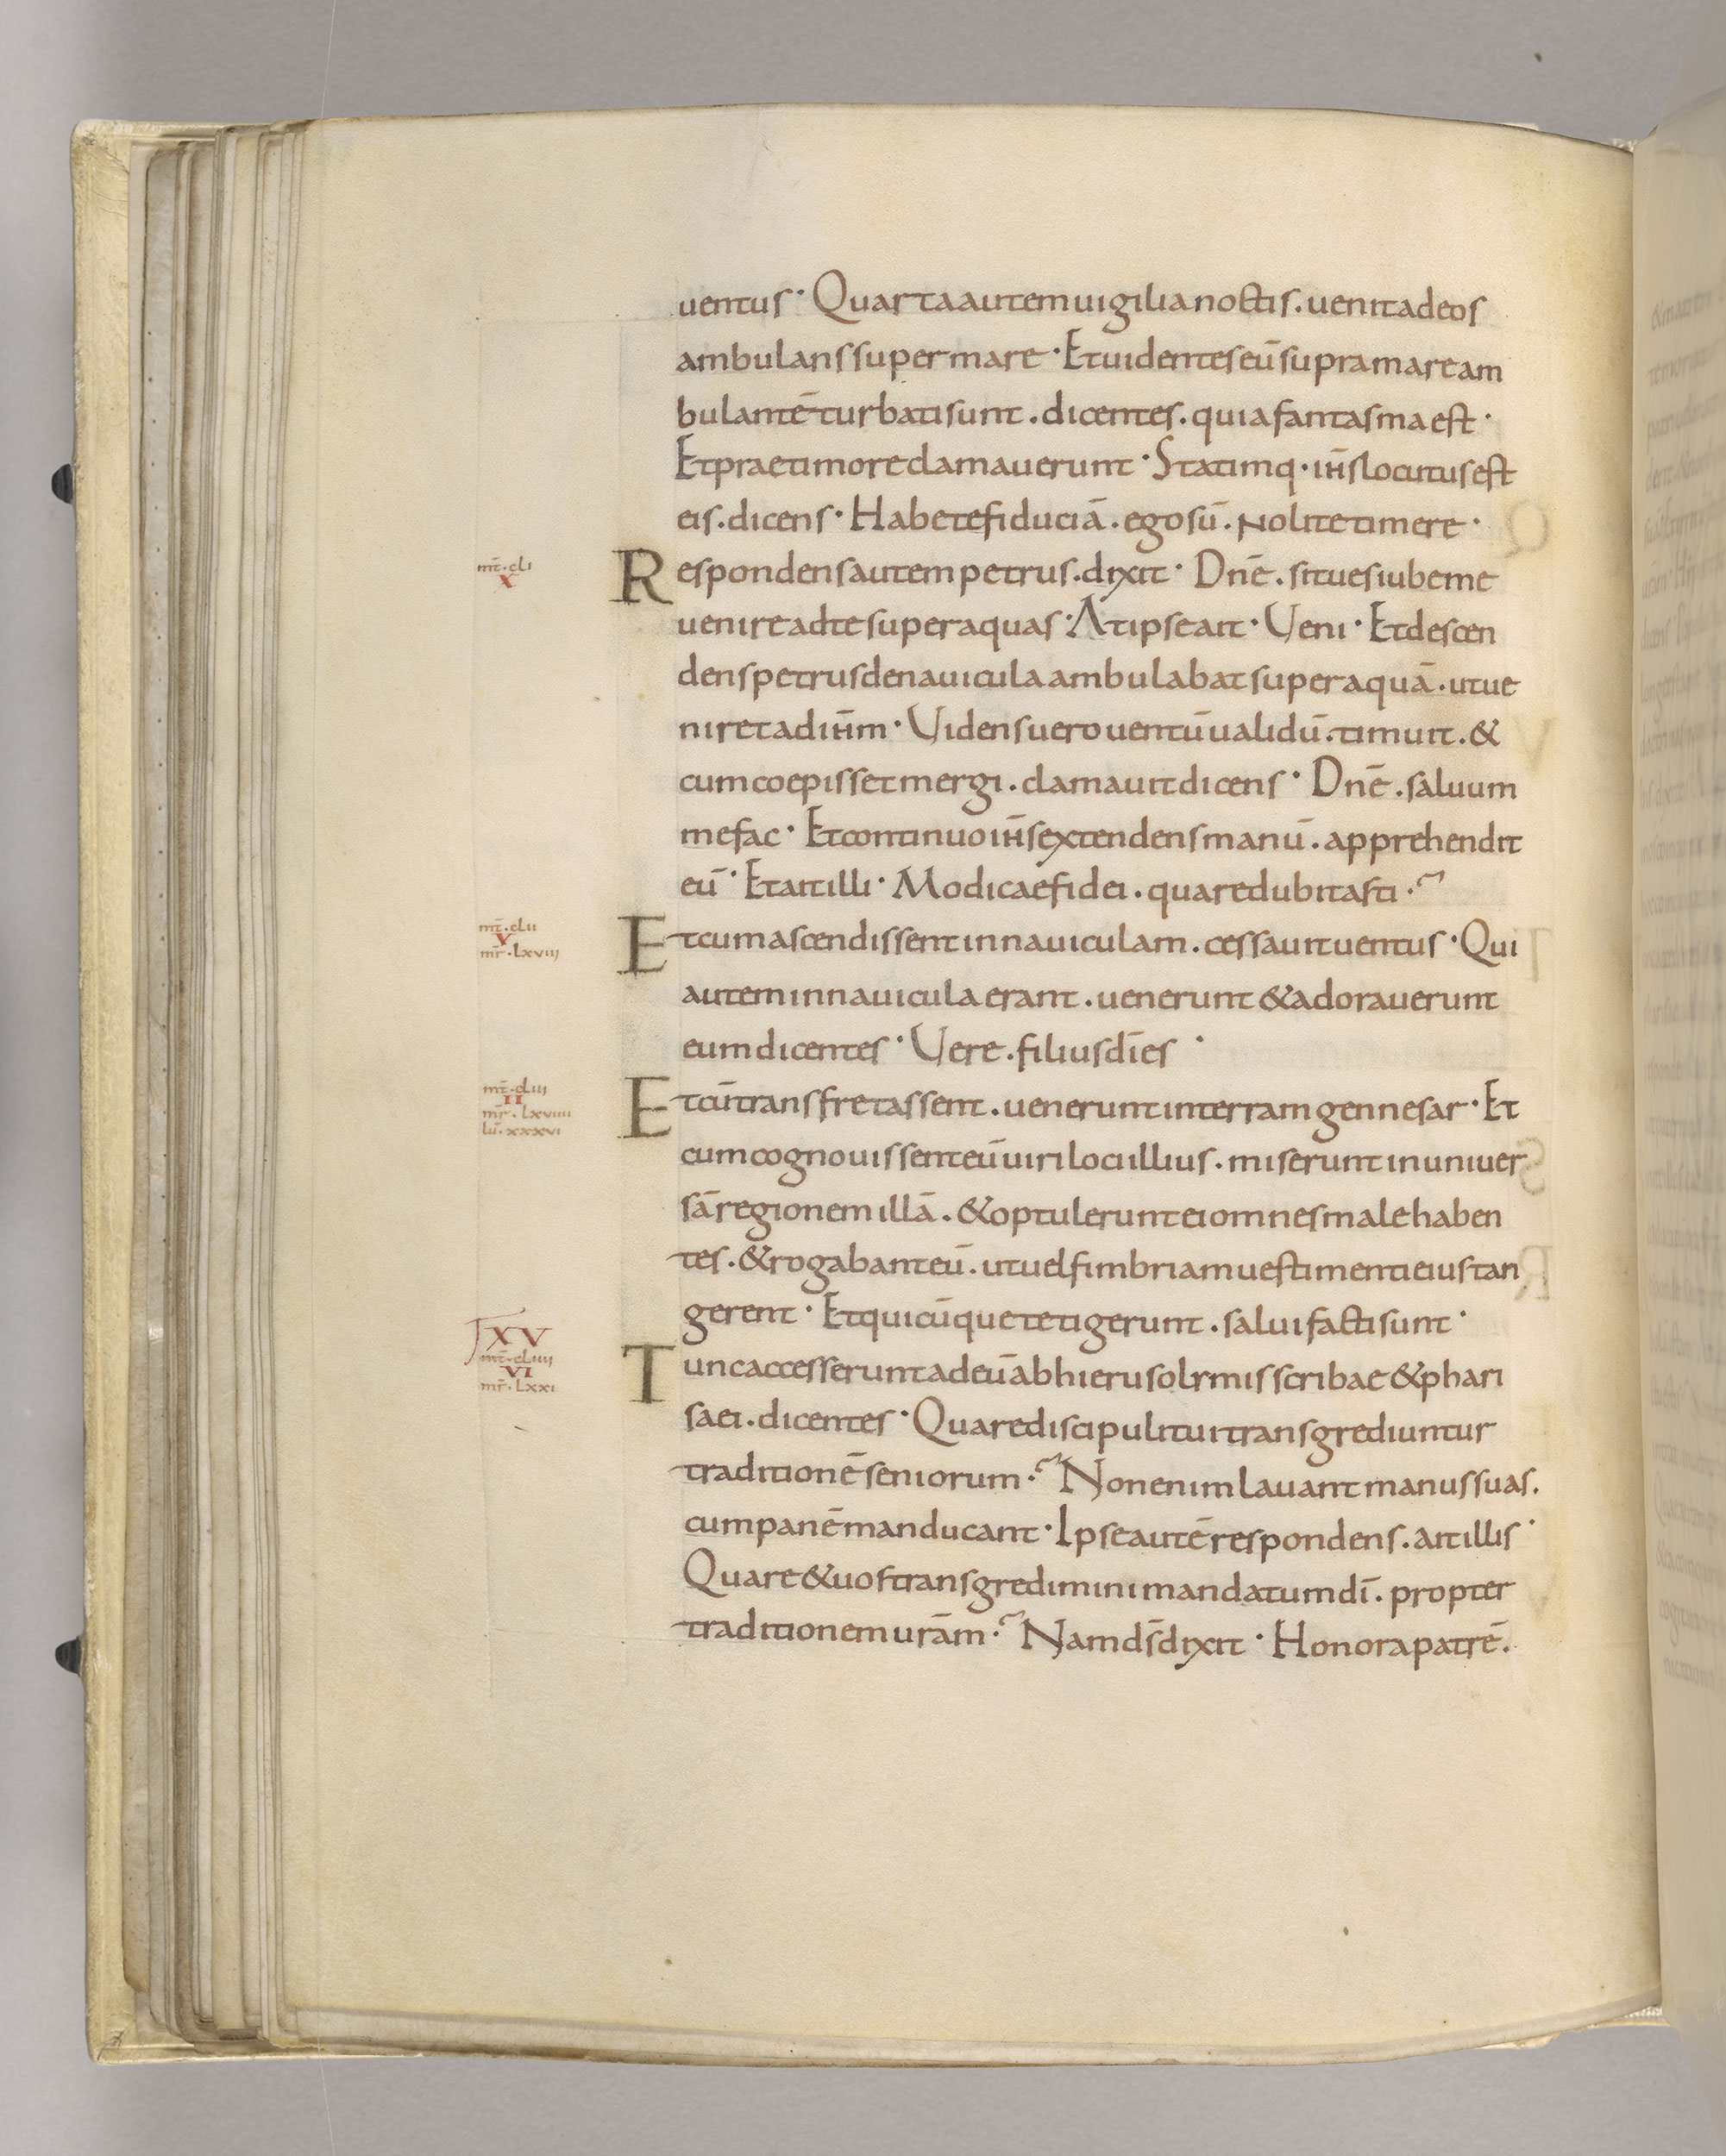 uentus· Quarta autem uigilia noctis. uenit ad eos
ambulans super mare· Et uidentes eū supra mare am
bulantē turbati sunt. dicentes. quia fantasma est·
Et prae timore clamauerunt· Statimq· ihs̄ locutus est
eis. dicens· Habete fiduciā. ego sū. Nolite timere·
mt̄·cli
x
Respondens autem petrus. dixit· Dnē. si tu es iube me
uenire ad te super aquas· At ipse ait· Ueni· Et descen
dens petrus de nauicula ambulabat super aquā. ut ue
niret ad ihm̄· Uidens uero uentū ualidū. timuit. &
cum coepisset mergi. clamauit dicens· Dnē. saluum
me fac· Et continuo ihs̄ extendens manū. apprehendit
eū· Et ait illi· Modicae fidei. quare dubitasti·~
mt̄·clii
v
mr̄·lxviii
Et cum ascendissent in nauiculam. cessauit uentus· Qui
autem in nauicula erant. uenerunt & adorauerunt
eum dicentes· Uere. filius dī es·
mt̄·cliii
II
mr̄·lxviiii
lū·xxxvi
Et cū transfretassent. uenerunt in terram gennesar· Et
cum cognouissent eū uiri loci illius. miserunt in uniuer
sā regionem illā. & optulerunt ei omnes male haben
tes. & rogabant eū. ut uel fimbriam uestimenti eius tan
gerent· Et quicūque tetigerunt. salui facti sunt·
XV
mt̄·cliiii
VI
mr̄·lxxi
Tunc accesserunt ad eū ab hierusolymis scribae & phari
saei. dicentes· Quare discipuli tui transgrediuntur
traditionē seniorum·~ Non enim lauant manus suas.
cum panē manducant· Ipse autē respondens. ait illis·
Quare & uos transgredimini mandatum dī. propter
traditionem urām·~ Nam ds̄ dixit· Honora patrē.